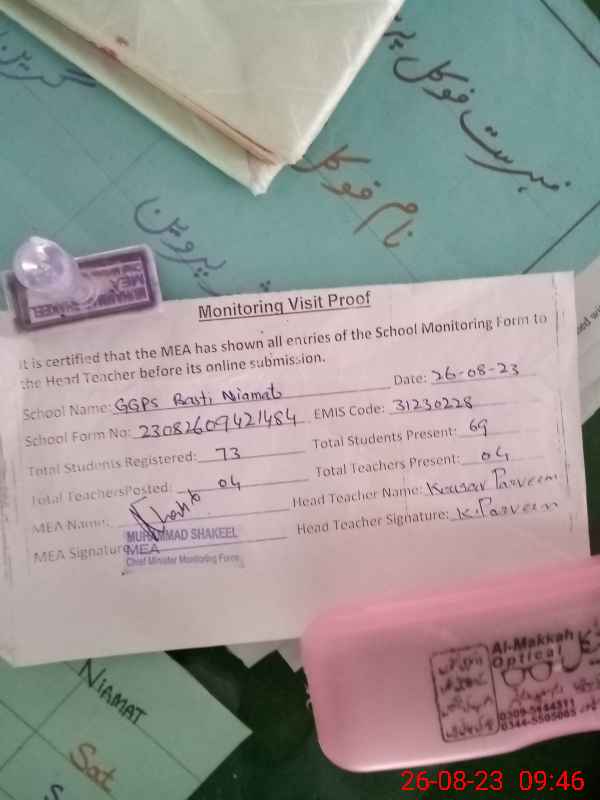 فہرست فوکل پر
نام فوکل
پروین
MUHAMMAD SHAKEEL
MEA
Monitoring Visit Proof
It is certified that the MEA has shown all entries of the School Monitoring Form to
the Head Teacher before its online submission.
School Name: GGPS Basti Niamat Date: 26-08-23
School Form No: 23082609421484 EMIS Code: 31230228
Total Students Registered: 73 Total Students Present: 69
Total TeachersPosted: 04 Total Teachers Present: 04
MEA Name: Head Teacher Name: Kousar Parveen
MEA Signature Head Teacher Signature: K.Parveen
MUHAMMAD SHAKEEL
MEA
Chief Minister Monitoring Force
Al-Makkah
Optical
NIAMAT
Sat
26-08-23 09:46